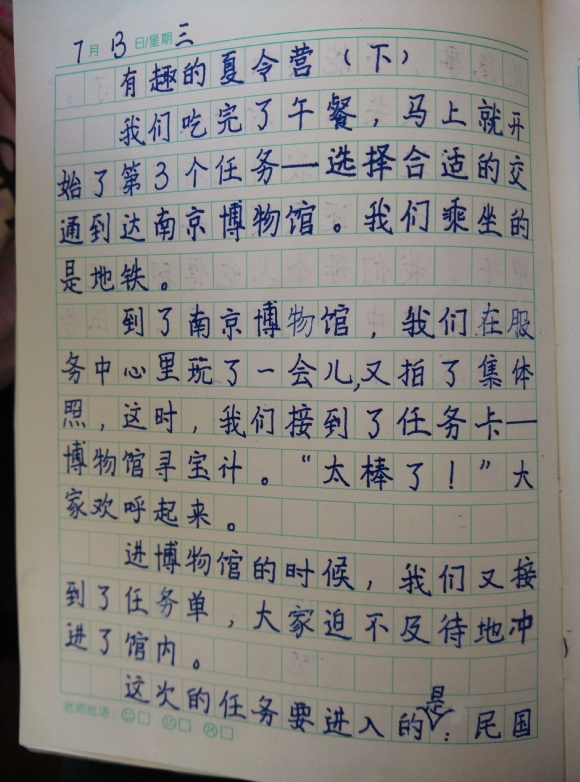 7月13日/星期三
有趣的夏令营（下）
我们吃完了午餐，马上就开
始了第3个任务—选择合适的交
通到达南京博物馆。我们乘坐的
是地铁。
到了南京博物馆，我们在服
务中心里玩了一会儿,又拍了集体
照，这时，我们接到了任务卡—
博物馆寻宝计。“太棒了！”大
家欢呼起来。
进博物馆的时候，我们又接
到了任务单，大家迫不及待地冲
进了馆内。
这次的任务要进入的是：民国
老师批语：